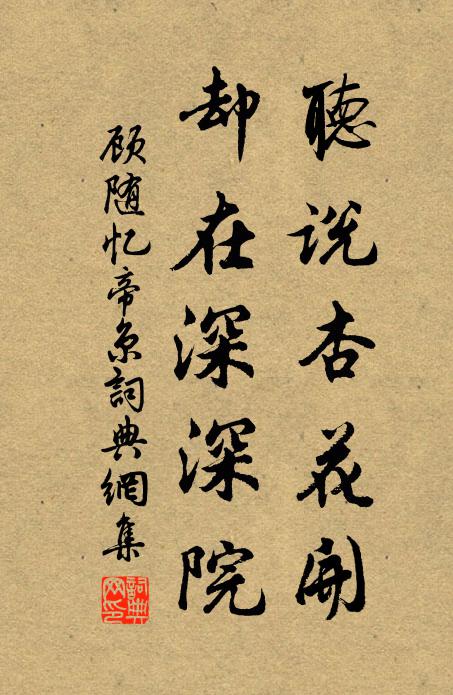 聽説杏花開
却在深深院
顾随忆帝京詞典網集
詞典网印